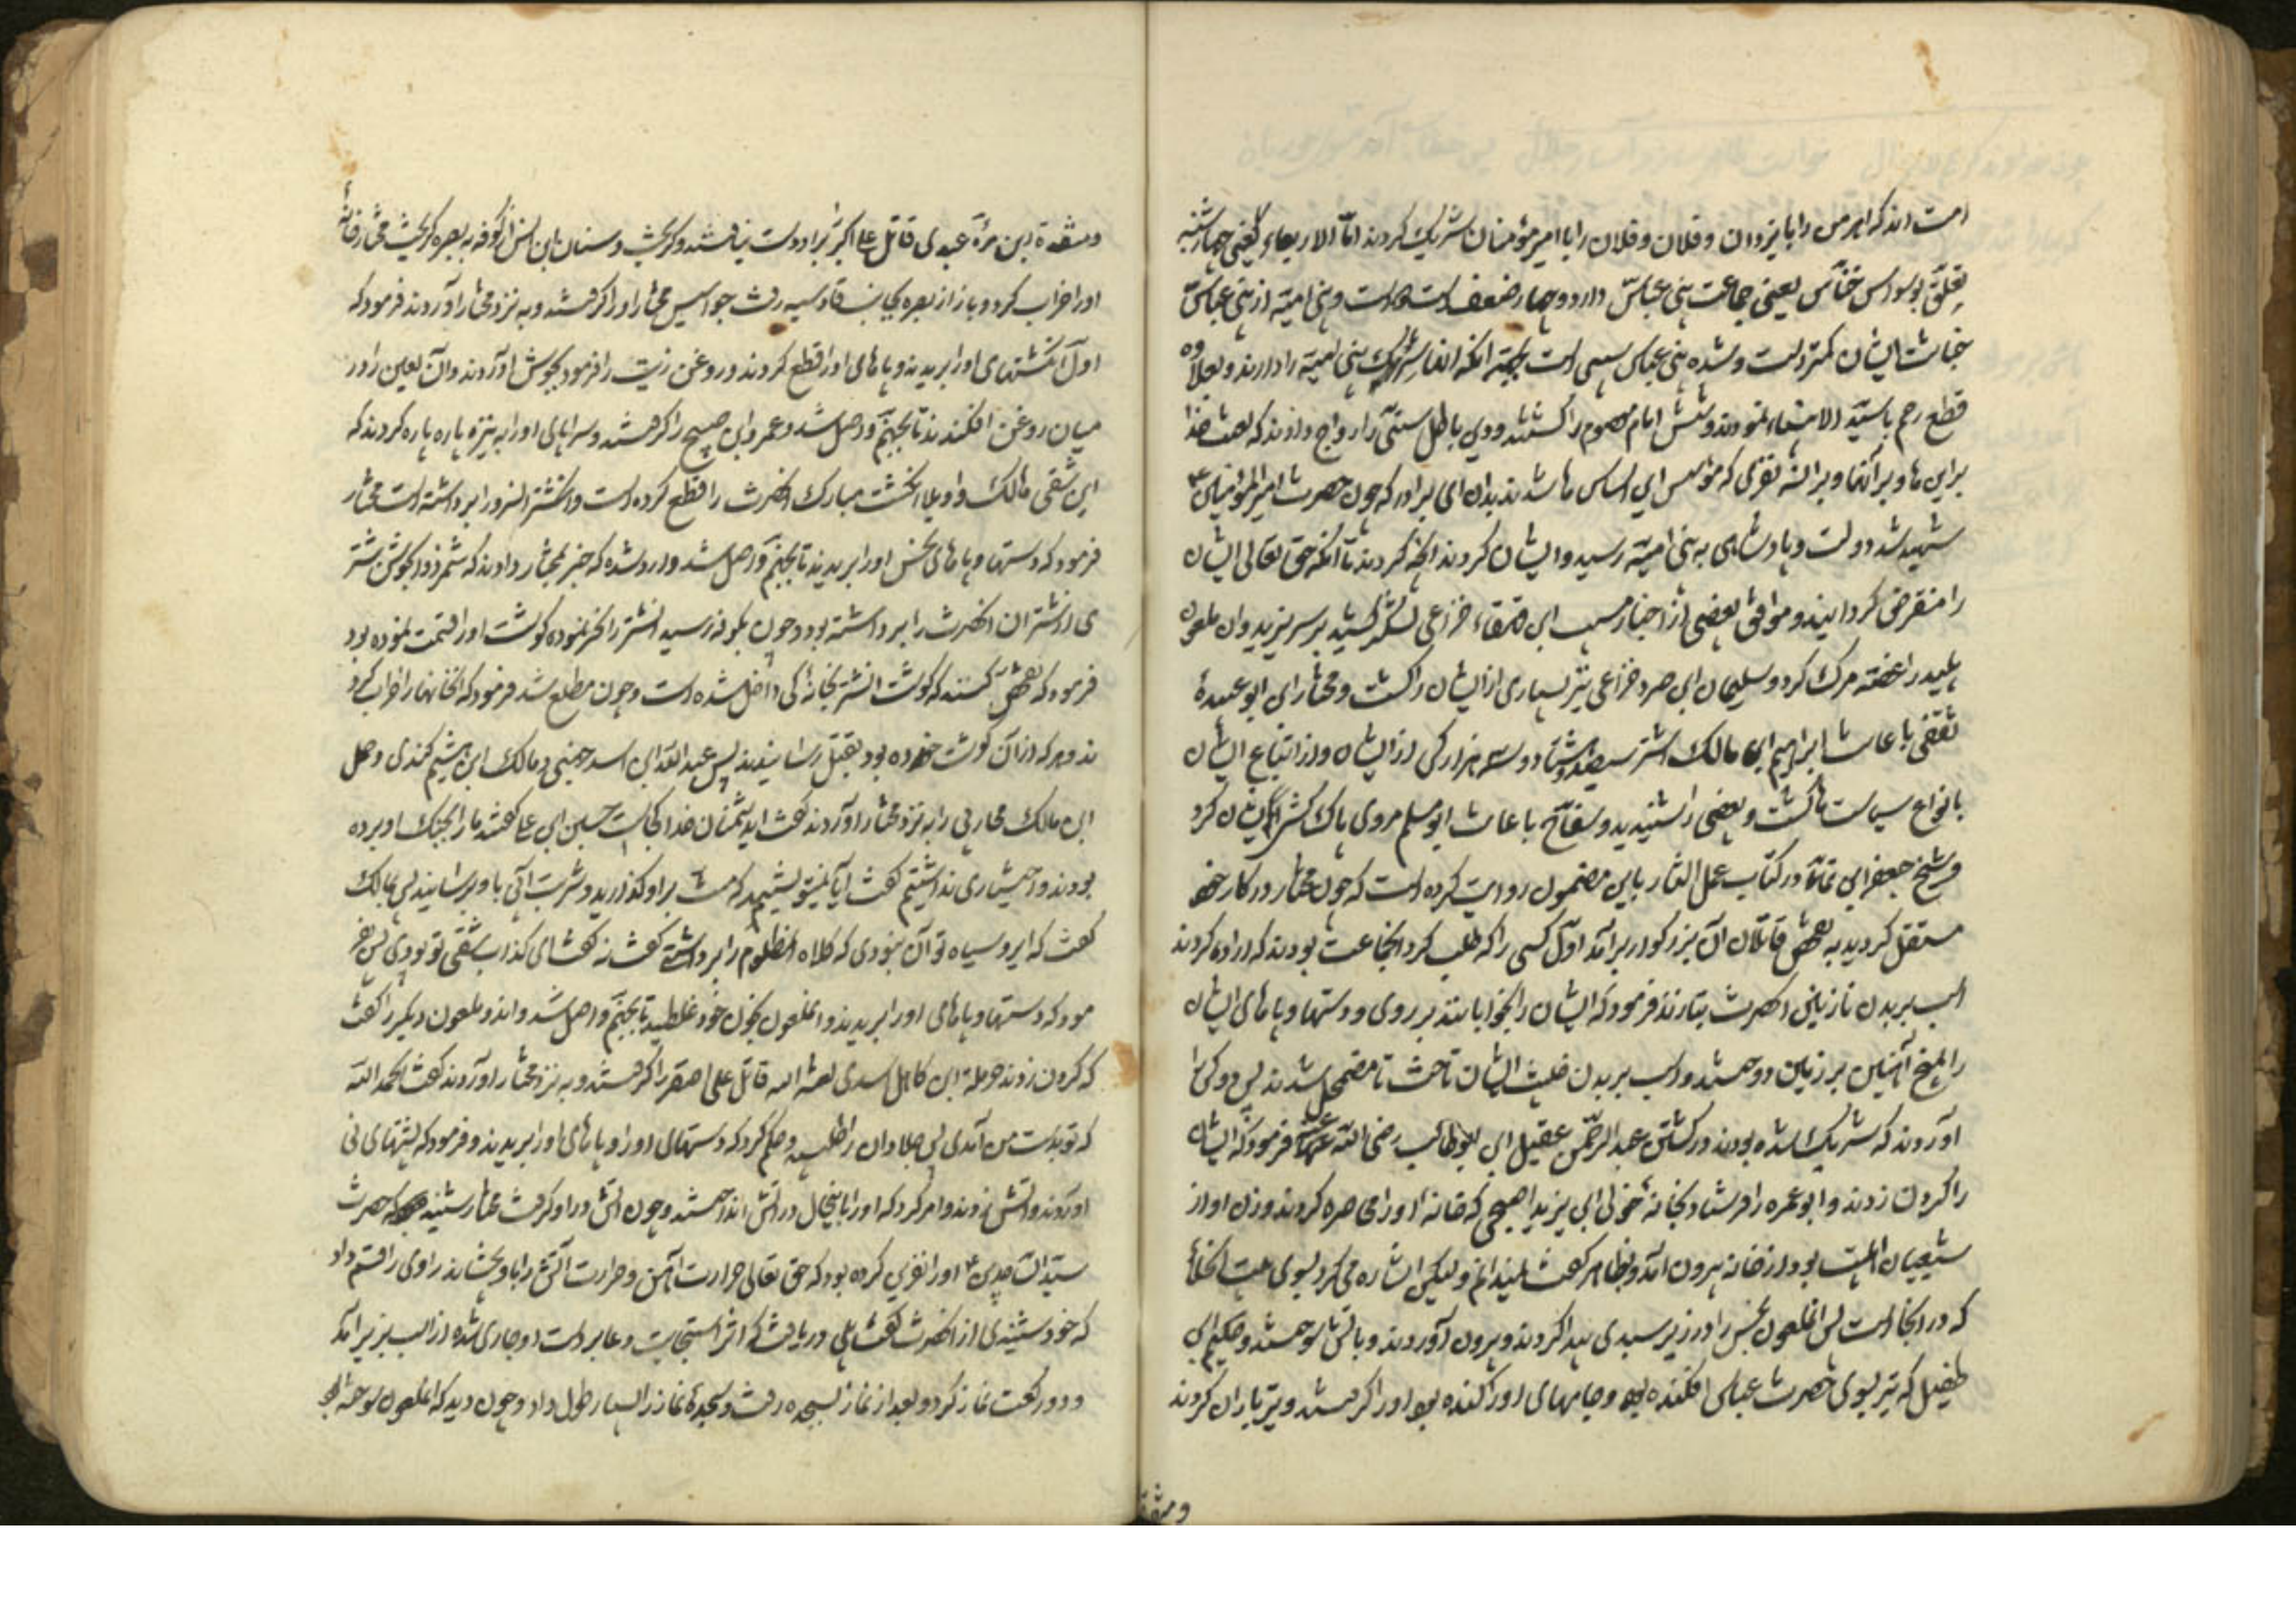 امت اند که اهرمن را با یزدان و فلان و فلان را با امیر مؤمنان شریک کردند امّا الاربعاء یعنی چهارشنبه
تعلّق بوسواس خنّاس یعنی جماعت بنی عباس دارد و چهار ضعف است و بنی امیّه از بنی عباس
خباثت ایشان کمتر است و شده بنی عباس بجهة آنکه آنها شرک بنی امیّه را دارند و بعلاوه
قطع رحم با سیّد الانبیاء نمودند و شش امام معصوم را کشتند و دین باطل سنّی را رواج دادند که لعنت خدا
بر این ها و بر آنها و بر السه نفری که مؤسس این اساس ها شدند بدان ای برادر که چون حضرت امیر المؤمنین ع
شهید شد دولت و پادشاهی به بنی امیّه رسید و ایشان کردند آنچه کردند تا آنکه حق تعالی ایشان
را منقرض گردانید و موافق بعضی از اخبار مسیب ابن قعقاء خزاعی لشکر کشید بر سر یزید و آن ملعون
پلید را غصّه مرک کرد و سلیمان ابن صرد خزاعی نیز بسیاری از ایشان را کشت و مختار ابن ابو عبیدهٔ
ثقفی با عانت ابراهیم ابن مالک اشتر سیصد و هشتاد و سه هزار کس از ایشان و از اتباع ایشان
بانواع سیاست ها کشت و بعضی را شنیدید و سفّاح با عانت ابو مسلم مروی پاک کش ایشان کرد
و شیخ جعفر ابن نما در کتاب عمل الثار باین مضمون روایت کرده است که چون مختار در کار خود
مستقل گردید به تفحّص قاتلان آن بزرگوار برآمد اوّل کسی را که طلب کرد آنجماعت بودند که اراده کردند
اسب بر بدن نازنین آنحضرت بتازند فرمود که ایشان را بخوابانند بر روی و دستها و پاهای ایشان
را بمیخ آهنین بر زمین دوختند و اسب بر بدن خبیث ایشان تاخت تا مضمحل شدند پس دو کس را
آوردند که شریک شده بودند در کشتن عبد الرّحمن عقیل ابن ابو طالب رضی اللّه عنه فرمود که ایشان
را گردن زدند و ابو عمره را فرستاد بخانهٔ خولی ابن یزید اصبحی که خانه او را محاصره کردند و زن او از
شیعیان اهلبیت بود از خانه بیرون آمد و بظاهر گفت نمیدانم و لیکن اشاره می کرد بسوی بیت الخلا
که در آنجا است پس آنملعون نجس را در زیر سبدی پیدا کردند و بیرون آوردند و بآتش سوختند و حکیم ابن
طفیل که تیر بسوی حضرت عباس افکنده بود و جامهای او را کنده بود او را گرفتند و تیر باران کردند
و منقذ
و منقذة ابن مرّة عبدی قاتل علی اکبر ع برا و دست نیافتند و گریخت و سنان ابن انس از کوفه به بصره گریخت مختار خانهٔ
او را خراب کرد و باز از بصره بجانب قادسیه رفت جواسیس مختار او را گرفتند و به نزد مختار آوردند فرمود که
اوّل انگشتهای او را بریدند و پاهای او را قطع کردند و روغن زیت را فرمود بجوش آوردند و آن لعین را در
میان روغن افکندند تا بجهنّم واصل شد و عمرو ابن صبیح را گرفتند و سراپای او را به نیزه پاره پاره کردند که
این شقی مالک واویلا انگشت مبارک آنحضرت را قطع کرده است و انگشتر انور را برداشته است مختار
فرمود که دستها و پاهای نجس او را بریدند تا بجهنّم واصل شد و وارد شده که خبر بمختار دادند که شمر ذو الجوشن شتر
ی از شتران آنحضرت را برداشته بود و چون بکوفه رسید آنشتر را نحر نموده گوشت او را قسمت نموده بود
فرمود که تفحّص کنند که گوشت آنشتر بخانهٔ کی داخل شده است و چون مطلع شد فرمود که آنخانها را خراب کرد
ند و هر که از آن گوشت خورده بود بقتل رسانیدند پس عبد اللّه ابن اسد جهنی و مالک ابن هیثم کندی و حمل
ابن مالک محاربی را به نزد مختار آوردند گفت ای دشمنان خدا کجاست حسین ابن علی گفتند ما را بجنگ او برده
بودند و اختیاری نداشتیم گفت آیا نمیتوانستیم که منت بر او گذارید و شربت آبی باو برسانید پس بمالک
گفت که ای رو سیاه تو آن نبودی که کلاه آنمظلوم را برداشتی گفت نه گفت ای کذاب شقی تو بودی پس فر
مود که دستها و پاهای او را بریدند و آنملعون بخون خود غلطید تا بجهنّم واصل شد و آن دو ملعون دیگر را گفت
که گردن زدند حرملة ابن کاهل اسدی لعنه الله قاتل علی اصغر را گرفتند و به نزد مختار آوردند گفت الحمد للّه
که تو بدست من آمدی پس جلادان را طلبید و حکم کرد که دستهای او را و پاهای او را بریدند و فرمود که پشتهای نی
آوردند و آتش زدند و امر کرد که او را باینحال در آتش انداختند و چون آتش در او گرفت مختار شنید که حضرت
سیّد السّاجدین ع او را نفرین کرده بود که حق تعالی حرارت آهن و حرارت آتش را باو بچشاند راوی را قسم داد
که خود شنیدی از آنحضرت گفت بلی دریافت که اثر استجابت دعا بر دست او جاری شده از اسب بزیر آمد
و دو رکعت نماز کرد و بعد از نماز بسجده رفت و سجدهٔ نماز را بسیار طول داد و چون دید که آنملعون سوخته